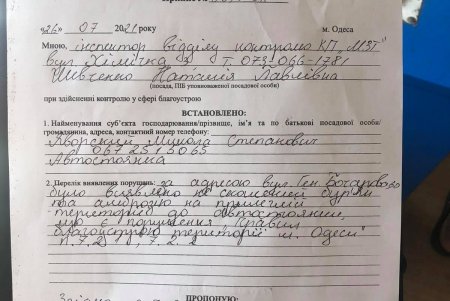 «26» 07 2021 року м. Одеса
Мною, інспектор відділу контролю КП „МЗТ"
вул. Хімічна Т. 073-066-1781
Шевченко Наталія Павлівна
(посада, ПІБ уповноваженої посадової особи)
при здійсненні контролю у сфері благоустрою
ВСТАНОВЛЕНО:
1. Найменування суб'єкта господарювання/прізвище, ім'я та по батькові посадової особи/
громадянина, адреса, контактний номер телефону:
Яворський Микола Степанович
0672515065
Автостоянка
2. Перелік виявлених порушень: за адресою вул. Ген. Бочарова
було виявлено не скошений бурʼян
та амброзію на прилеглій
території до автостоянки,
що є порушення „Правил
благоустрою території м. Одеси"
п. 7.2.1, 7.2.2
ПРОПОНУЮ: